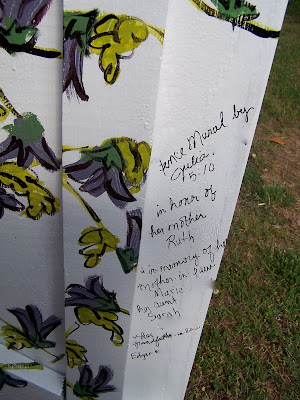 Fence Mural by
Julia
5-10
in honor of
her mother
Ruth
+ in memory of her
mother-in-law
Marie
her aunt
Sarah
+ her
grandfather-in-law
Edgar